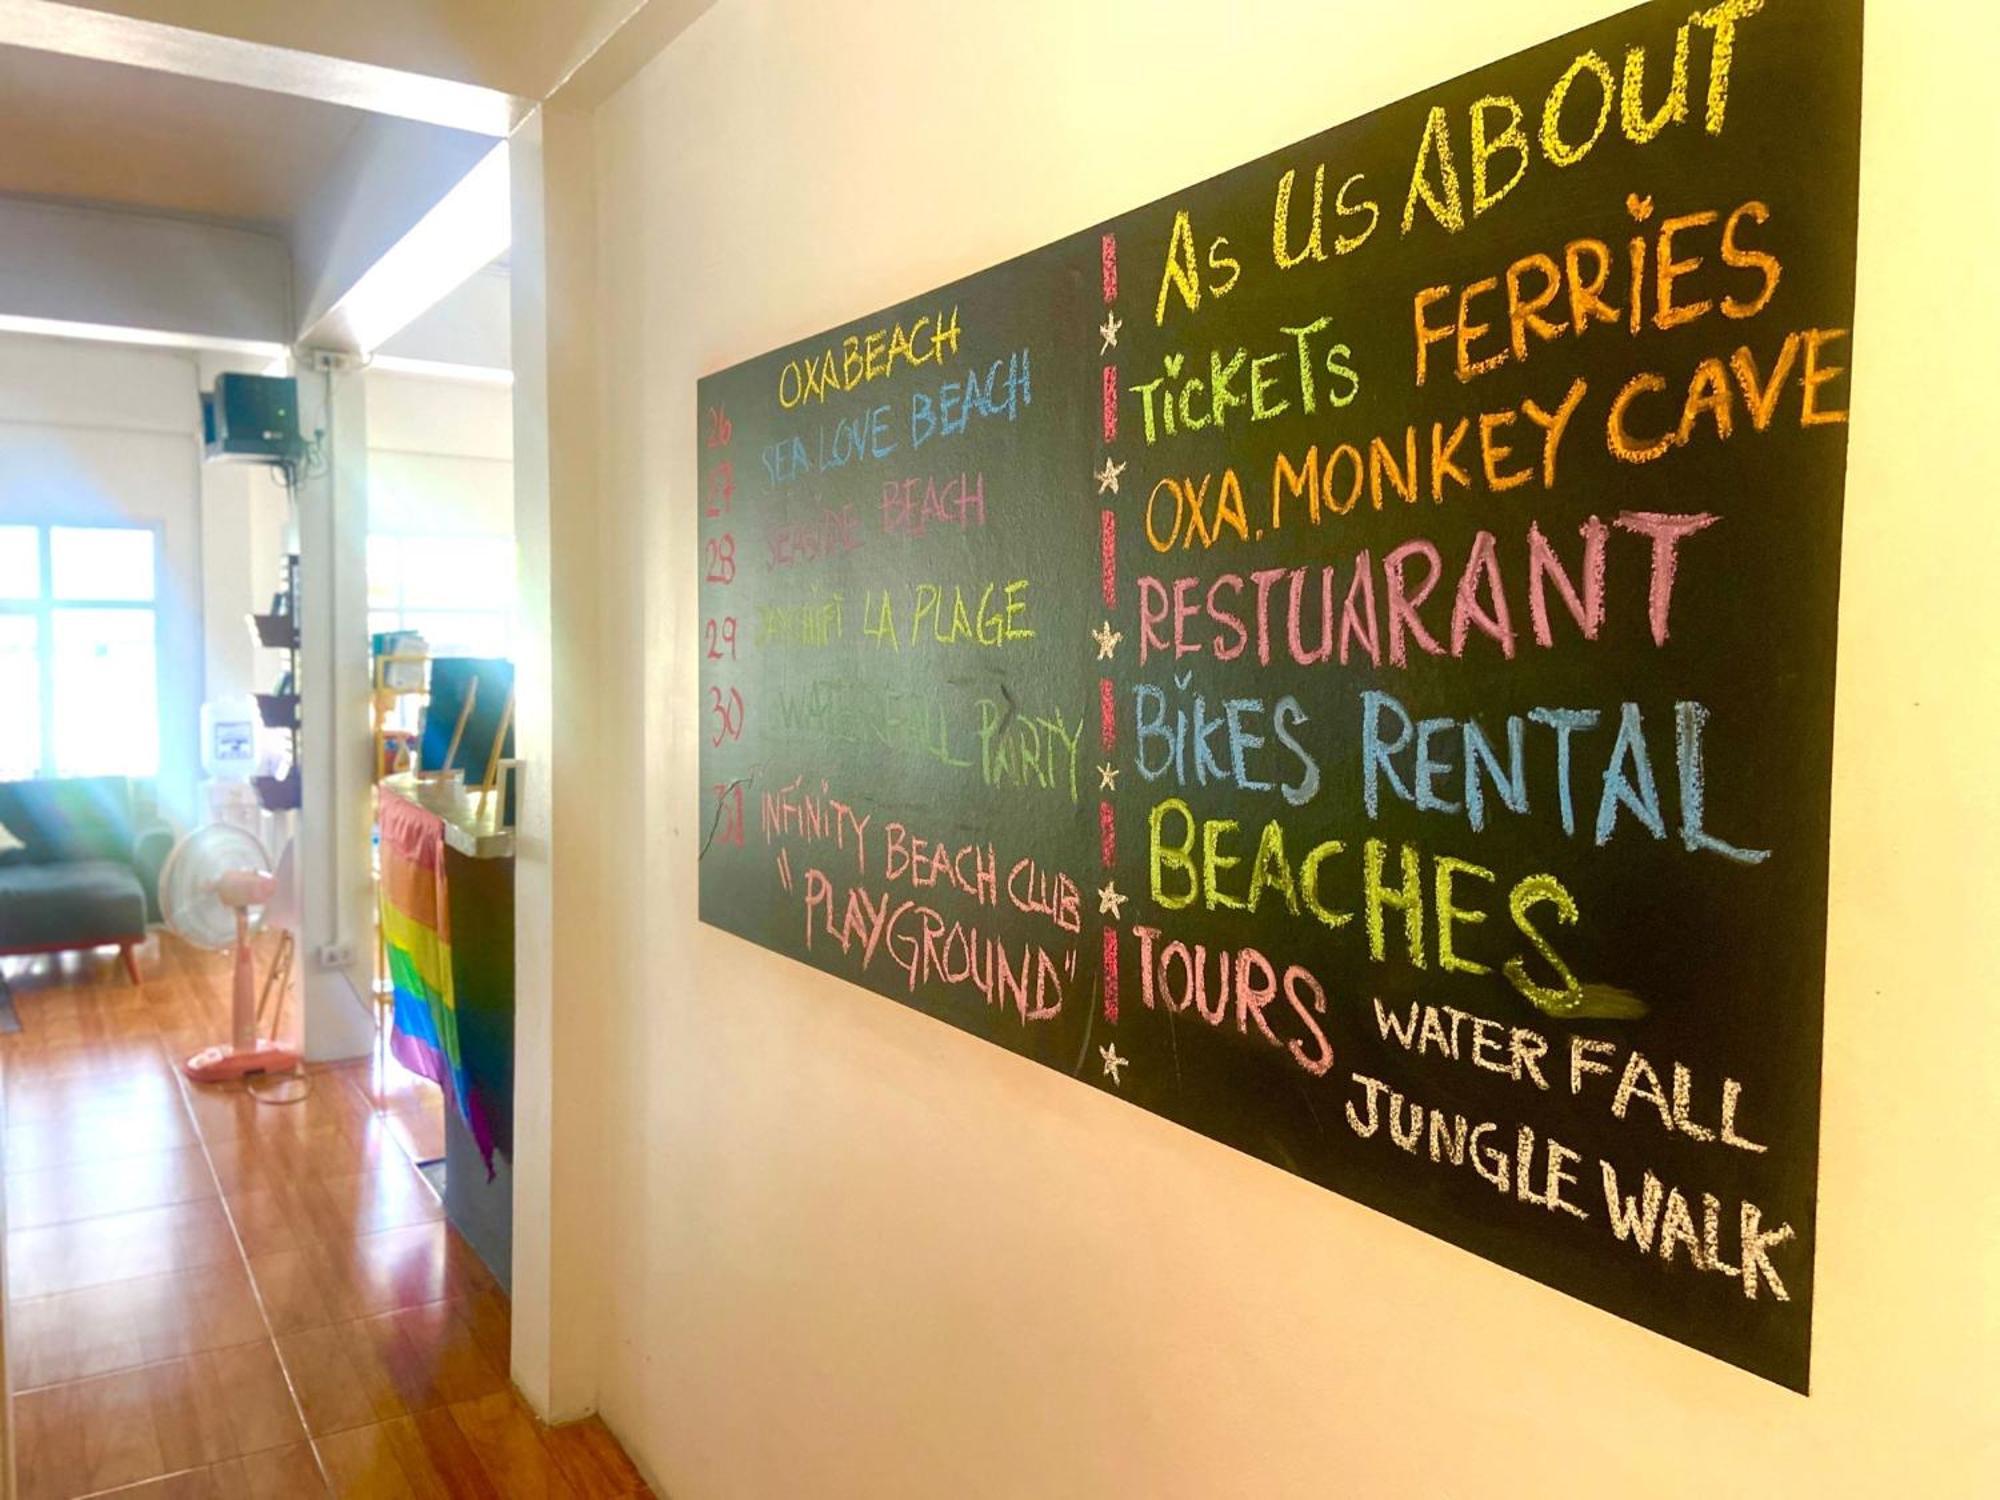 26 OXA BEACH
27 SEA LOVE BEACH
28 SEASIDE BEACH
29 LA PLAGE
30 WATERFALL PARTY
31 INFINITY BEACH CLUB
"PLAYGROUND"
As Us ABOUT
TICKETS FERRIES
OXA. MONKEY CAVE
RESTUARANT
BIKES RENTAL
BEACHES
TOURS WATER FALL
JUNGLE WALK